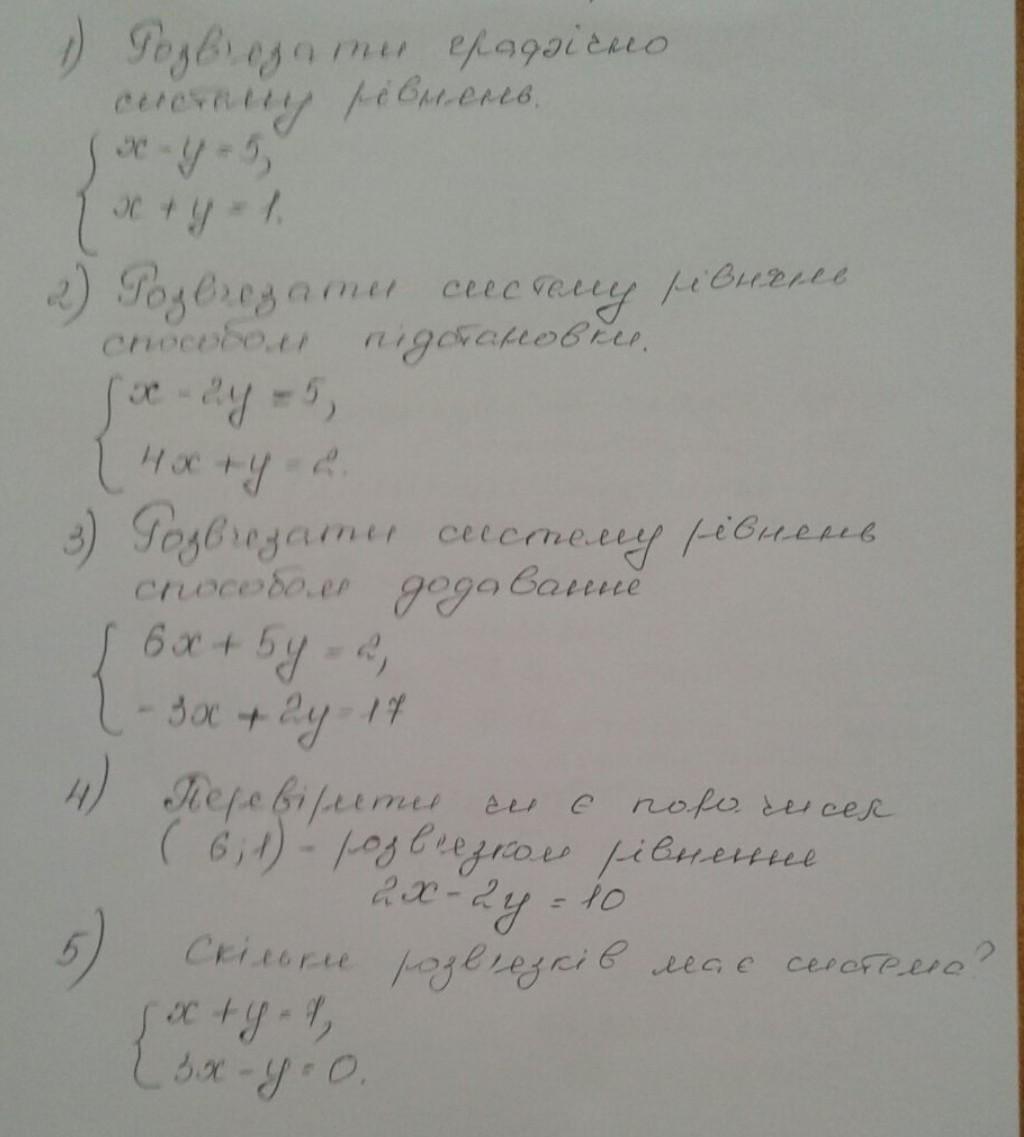 1) Розв'язати графічно
систему рівнянь.
x - y = 5,
x + y = 1.
2) Розв'язати систему рівнянь
способом підстановки.
x - 2y = 5,
4x + y = 2.
3) Розв'язати систему рівнянь
способом додавання
6x + 5y = 2,
-3x + 2y = 17
4) Перевірити чи є пара чисел
(6;1) - розв'язком рівняння
2x - 2y = 10
5) Скільки розв'язків має система?
x + y = 7,
3x - y = 0.